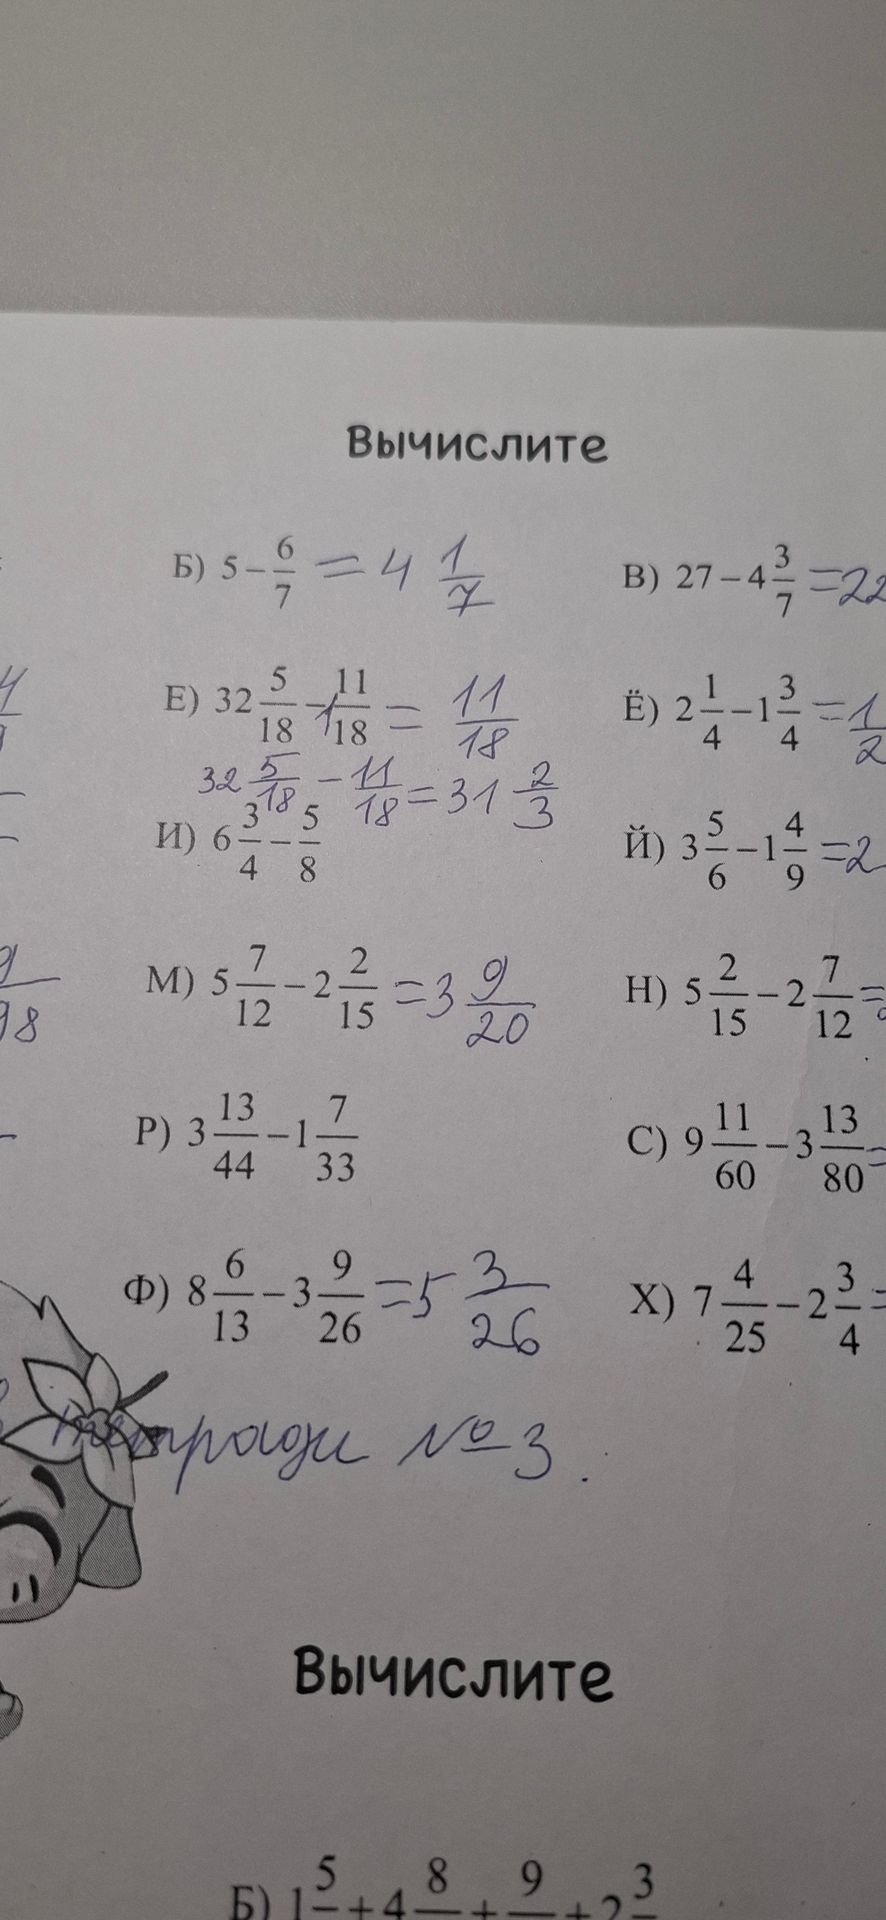 Вычислите
Б) 5 − 6/7 = 4 1/7
В) 27 − 4 3/7 = 22
Е) 32 5/18 − 1 11/18 = 11/18
Ё) 2 1/4 − 1 3/4 = 1/2
32 5/18 − 11/18 = 31 2/3
И) 6 3/4 − 5/8
Й) 3 5/6 − 1 4/9 = 2
М) 5 7/12 − 2 2/15 = 3 9/20
Н) 5 2/15 − 2 7/12 =
98
Р) 3 13/44 − 1 7/33
С) 9 11/60 − 3 13/80 =
Ф) 8 6/13 − 3 9/26 = 5 3/26
Х) 7 4/25 − 2 3/4 =
тетради № 3.
Вычислите
Б) 1 5 + 4 8 + 9 + 2 3